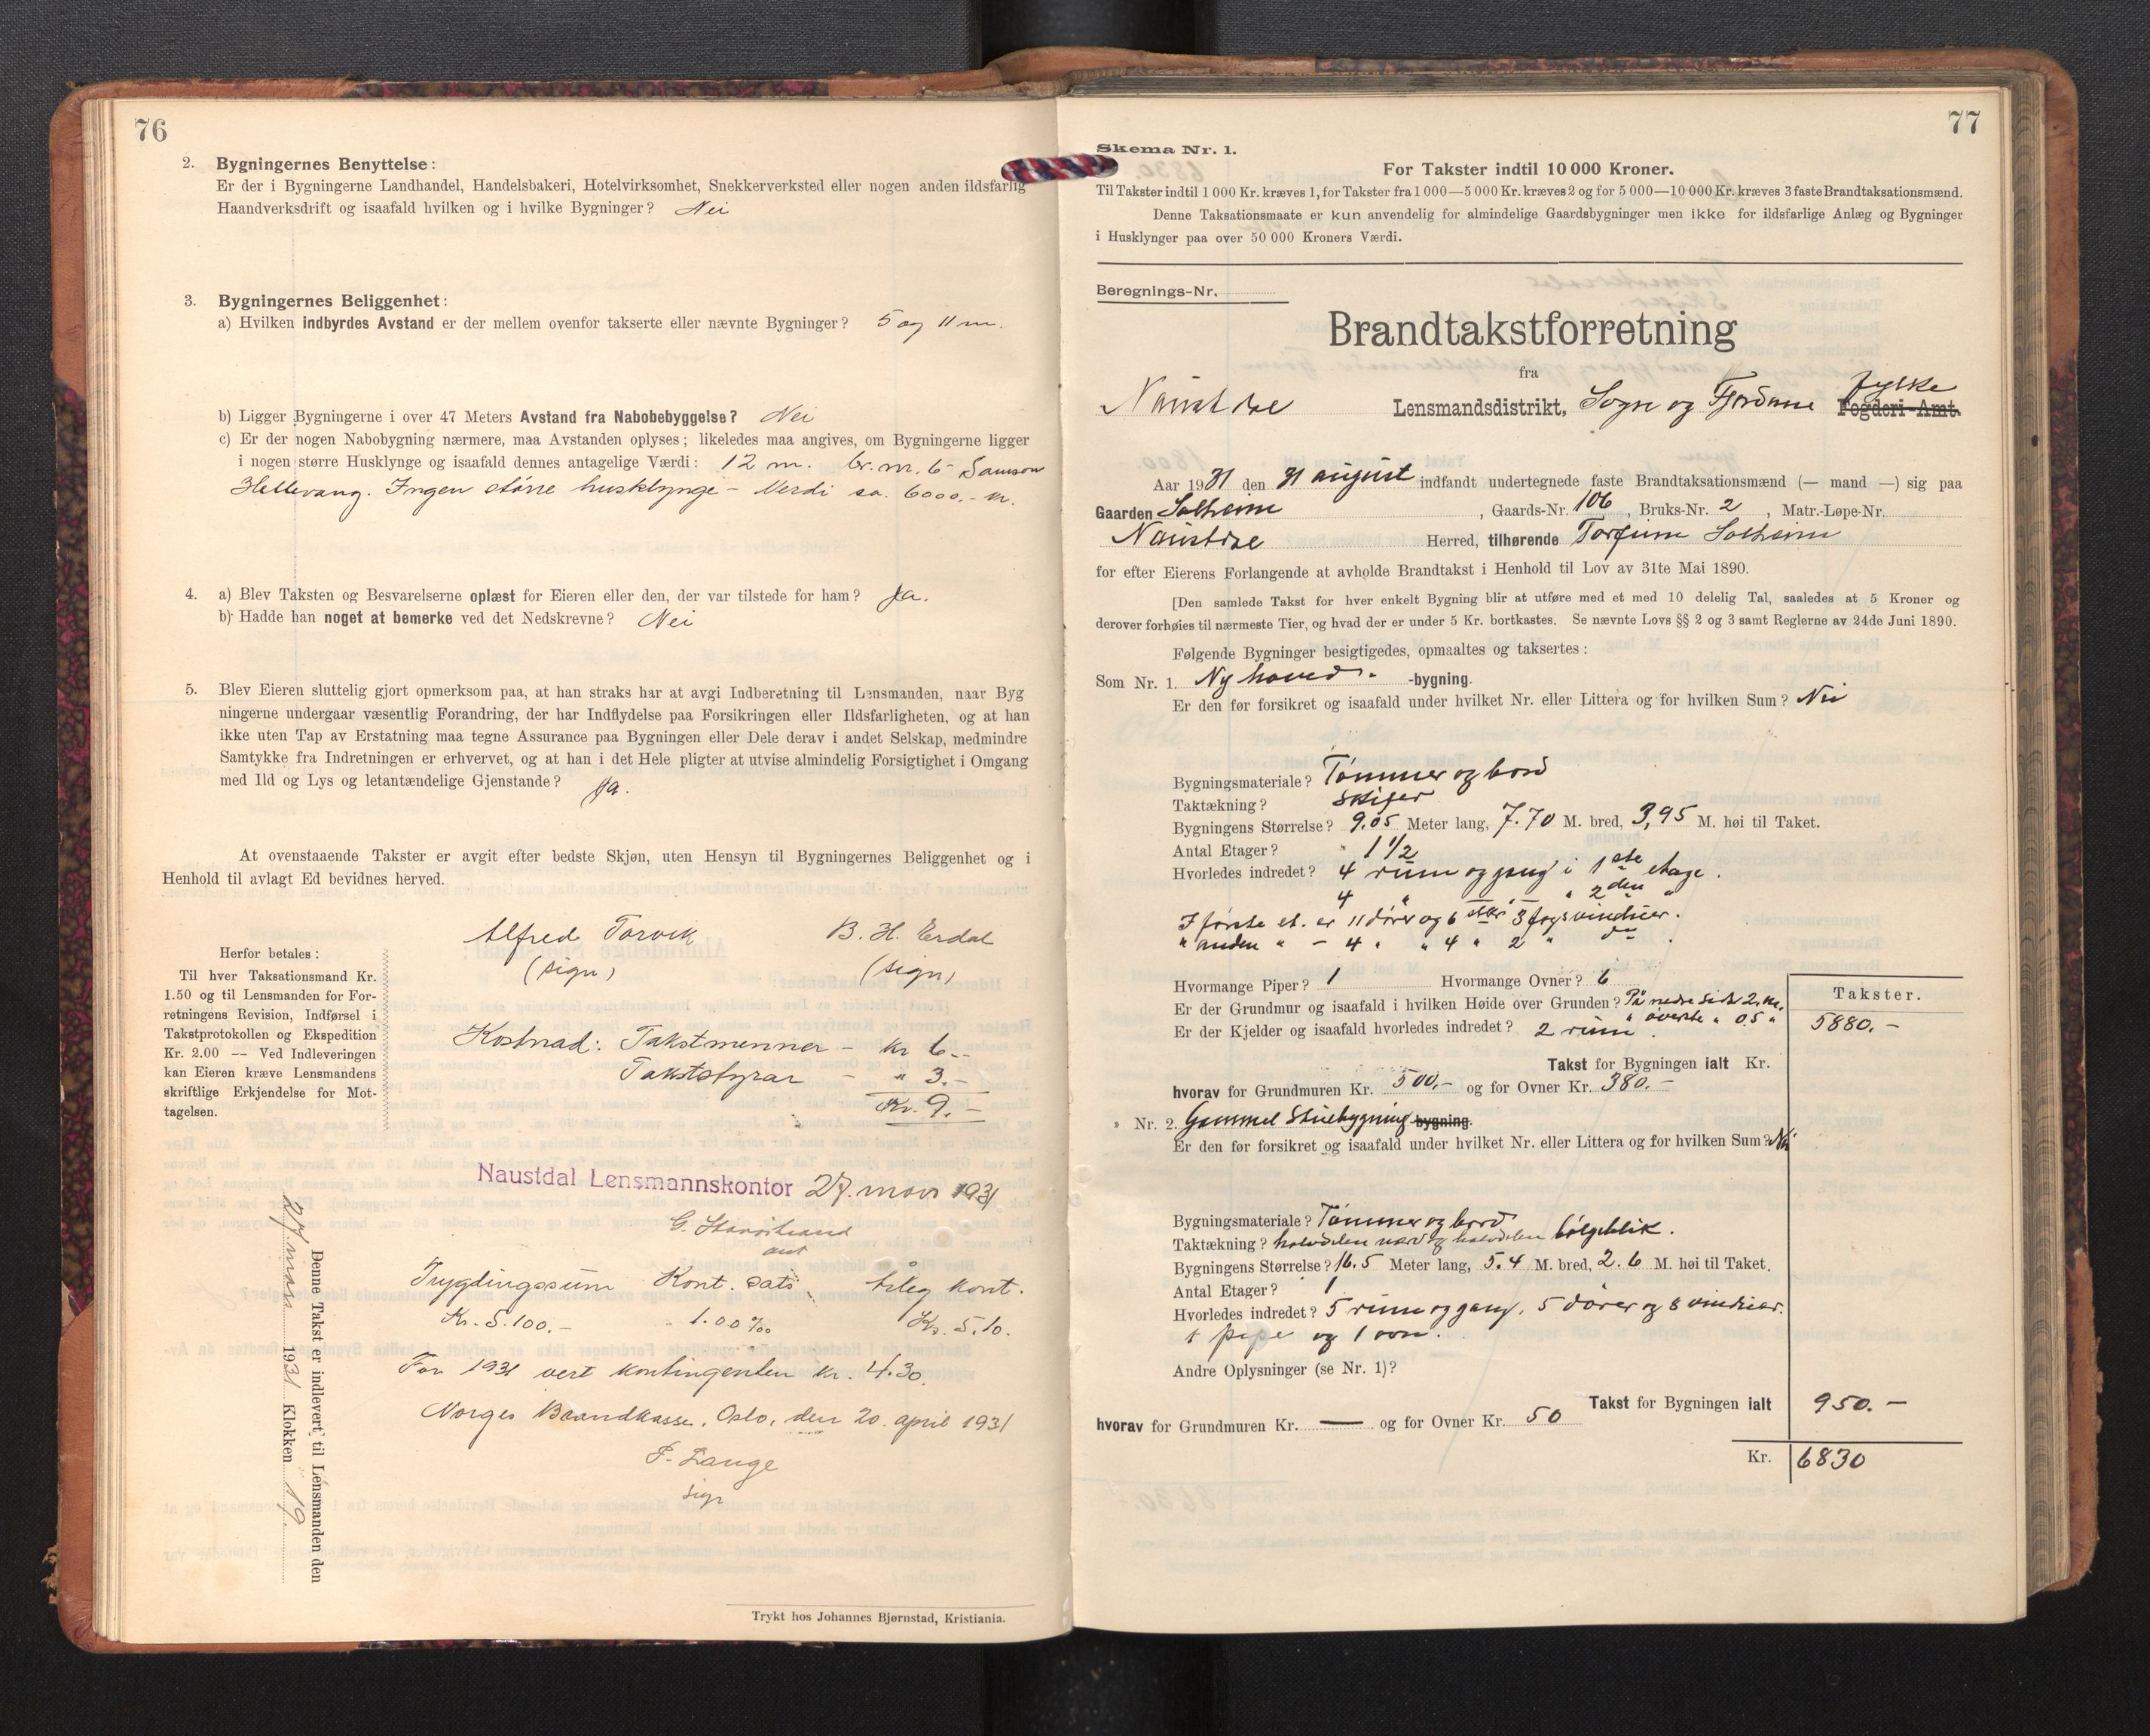 76
2. Bygningernes Benyttelse:
Er der i Bygningerne Landhandel, Handelsbakeri, Hotelvirksomhet, Snekkerverksted eller nogen anden ildsfarlig
Haandverksdrift og isaafald hvilken og i hvilke Bygninger? Nei
3. Bygningernes Beliggenhet:
a) Hvilken indbyrdes Avstand er der mellem ovenfor takserte eller nævnte Bygninger? 5 og 11 m.
b) Ligger Bygningerne i over 47 Meters Avstand fra Nabobebyggelse? Nei
c) Er der nogen Nabobygning nærmere, maa Avstanden oplyses; likeledes maa angives, om Bygningerne ligger
i nogen større Husklynge og isaafald dennes antagelige Værdi: 12 m. br. nr. 6 - Samson
Hellevang. Ingen større husklynge - Verdi ca. 6000.- kr.
4. a) Blev Taksten og Besvarelserne oplæst for Eieren eller den, der var tilstede for ham? Ja.
b) Hadde han noget at bemerke ved det Nedskrevne? Nei
5. Blev Eieren sluttelig gjort opmerksom paa, at han straks har at avgi Indberetning til Lensmanden, naar Byg
ningerne undergaar væsentlig Forandring, der har Indflydelse paa Forsikringen eller Ildsfarligheten, og at han
ikke uten Tap av Erstatning maa tegne Assurance paa Bygningen eller Dele derav i andet Selskap, medmindre
Samtykke fra Indretningen er erhvervet, og at han i det Hele pligter at utvise almindelig Forsigtighet i Omgang
med Ild og Lys og letantændelige Gjenstande? Ja.
At ovenstaaende Takster er avgit efter bedste Skjøn, uten Hensyn til Bygningernes Beliggenhet og i
Henhold til avlagt Ed bevidnes herved.
Alfred Torvik B. H. Erdal
(sign) (sign)
Herfor betales:
Til hver Taksationsmand Kr.
1.50 og til Lensmanden for For-
retningens Revision, Indførsel i
Takstprotokollen og Ekspedition
Kr. 2.00 — Ved Indleveringen
kan Eieren kræve Lensmandens
skriftlige Erkjendelse for Mot-
tagelsen.
Kostnad: Takstmenner - kr 6.-
Takststyrar - " 3.-
Kr. 9.-
Naustdal Lensmannskontor 27. mars 1931
Trygdingssum Kont. sats årleg kont.
Kr. 5.100.- 1.00 ‰ Kr. 5.10.
For 1931 vert kontingenten kr. 4.30.
Norges Brandkasse, Oslo, den 20. april 1931
P. Lange
sign
Denne Takst er indlevert til Lensmanden den
27. mars 1931 Klokken 19.
Trykt hos Johannes Bjørnstad, Kristiania.
77
Skema Nr. 1.
For Takster indtil 10 000 Kroner.
Til Takster indtil 1 000 Kr. kræves 1, for Takster fra 1 000—5 000 Kr. kræves 2 og for 5 000—10 000 Kr. kræves 3 faste Brandtaksationsmænd.
Denne Taksationsmaate er kun anvendelig for almindelige Gaardsbygninger men ikke for ildsfarlige Anlæg og Bygninger
i Husklynger paa over 50 000 Kroners Værdi.
Beregnings-Nr.
Brandtakstforretning
fra
Naustdal Lensmandsdistrikt, Sogn og Fjordane fylke Fogderi-Amt.
Aar 1931 den 31 august indfandt undertegnede faste Brandtaksationsmænd (— mand —) sig paa
Gaarden Solheim, Gaards-Nr. 106, Bruks-Nr. 2, Matr.-Løpe-Nr.
Naustdal Herred, tilhørende Torfinn Solheim
for efter Eierens Forlangende at avholde Brandtakst i Henhold til Lov av 31te Mai 1890.
[Den samlede Takst for hver enkelt Bygning blir at utføre med et med 10 delelig Tal, saaledes at 5 Kroner og
derover forhøies til nærmeste Tier, og hvad der er under 5 Kr. bortkastes. Se nævnte Lovs §§ 2 og 3 samt Reglerne av 24de Juni 1890.
Følgende Bygninger besigtigedes, opmaaltes og taksertes:
Som Nr. 1. Ny hoved- -bygning.
Er den før forsikret og isaafald under hvilket Nr. eller Littera og for hvilken Sum? Nei
Bygningsmateriale? Tømmer og bord
Taktækning? Skifer
Bygningens Størrelse? 9.05 Meter lang, 7.70 M. bred, 3,95 M. høi til Taket.
Antal Etager? 1 1/2
Hvorledes indredet? 4 rum og gang i 1ste etage.
4 " " " 2den "
I første et. er 11 dører og 6 stkr 3 fags vinduer.
" anden " - 4 " " 4 " 2 " do.
Hvormange Piper? 1 Hvormange Ovner? 6
Takster.
Er der Grundmur og isaafald i hvilken Høide over Grunden? På nedre side 2. m.
" øverste " 0.5 "
Er der Kjelder og isaafald hvorledes indredet? 2 rum. 5880.-
Takst for Bygningen ialt Kr.
hvorav for Grundmuren Kr. 500.- og for Ovner Kr. 380.-
» Nr. 2. Gammel Stuebygning bygning.
Er den før forsikret og isaafald under hvilket Nr. eller Littera og for hvilken Sum? Nei
Bygningsmateriale? Tømmer og bord
Taktækning? halvdelen og halvdelen bølgeblik.
Bygningens Størrelse? 16.5 Meter lang, 5.4 M. bred, 2.6 M. høi til Taket.
Antal Etager? 1
Hvorledes indredet? 5 rum og gang, 5 dører og 8 vinduer.
1 pipe og 1 ovn.
Andre Oplysninger (se Nr. 1)?
Takst for Bygningen ialt 950.-
hvorav for Grundmuren Kr. — og for Ovner Kr. 50
Kr. 6830